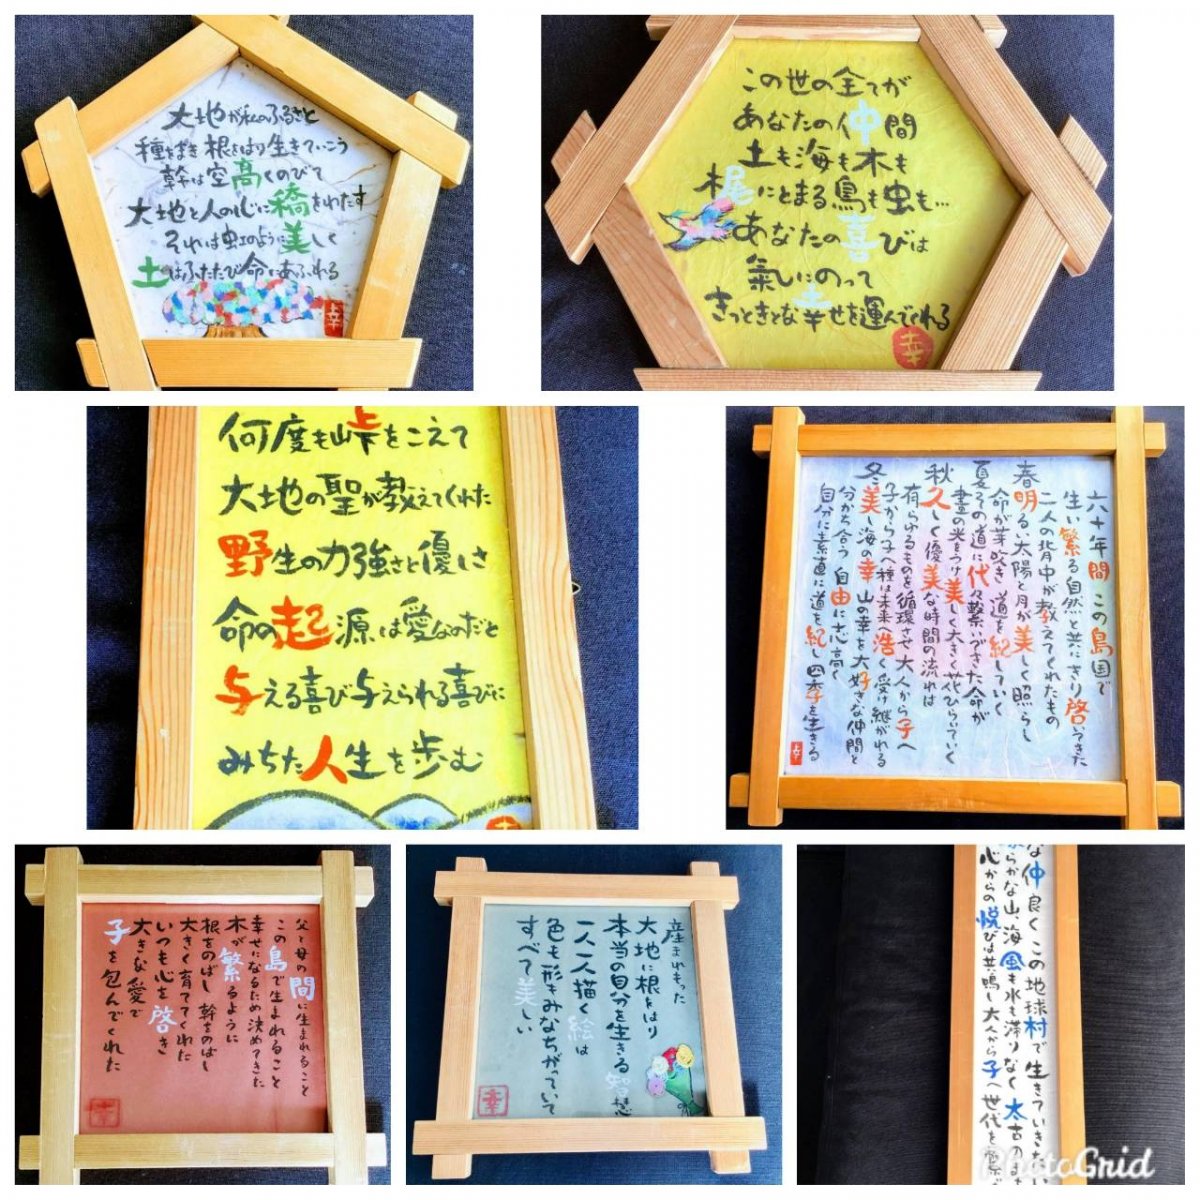 大地が私のふるさと
種をまき根をはり生きていこう
幹は空高くのびて
大地と人の心に橋をわたす
それは虹のように美しく
土はふたたび命にあふれる
幸
この世の全てが
あなたの仲間
土も海も木も
梶にとまる鳥も虫も…
あなたの喜びは
氣にのって
きっときとな幸せを運んでくれる
幸
何度も峠をこえて
大地の聖が教えてくれた
野生の力強さと優しさ
命の起源は愛なのだと
与える喜び与えられる喜びに
みちた人生を歩む
幸
六十年間この島国で
生い繁る自然と共にきり啓いてきた
二人の背中が教えてくれたもの
春明るい太陽と月が美しく照らし
命が芽吹き道を紀していく
夏その道に代々繋いできた命が
晝の光をうけ美しく大きく花ひらいていく
秋久しく優美な時間の流れは
有らゆるものを循環させ大人から子へ
子から子へ種は未来へ浩く受け継がれる
冬美し海の幸山の幸を大好きな仲間と
分かち合う自由に志高く
自分に素直に道を紀し四季を生きる
幸
父と母の間に生まれること
この島で生まれること
幸せになるため決めてきた
木が繁るように
根をのばし幹をのばし
大きく育ててくれた
いつも心を啓き
大きな愛で
子を包んでくれた
幸
産まれもった
大地に根をはり
本当の自分を生きる智慧
一人一人描く絵は
色も形もみなちがっていて
すべて美しい
幸
な仲良くこの地球村で生きていきたい
らかな山、海風も水も滞りなく太古のまま
心からの悦びは共鳴し大人から子へ世代を
PhotoGrid